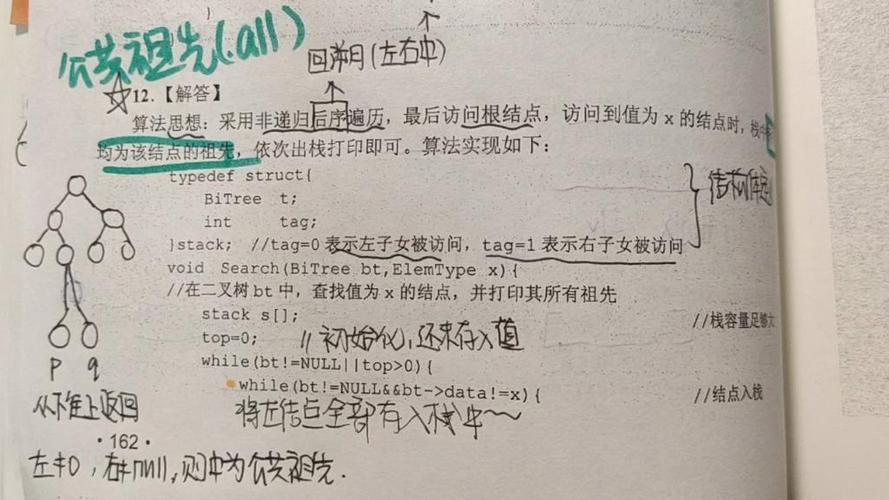 公共祖先(all)
回溯(左右中)
12.【解答】
算法思想：采用非递归后序遍历，最后访问根结点，访问到值为 x 的结点时，栈中
均为该结点的祖先，依次出栈打印即可。算法实现如下：
typedef struct{
BiTree t;
int tag;
}stack; //tag=0 表示左子女被访问，tag=1 表示右子女被访问
结构体定
void Search(BiTree bt,ElemType x){
//在二叉树 bt 中，查找值为 x 的结点，并打印其所有祖先
stack s[]; //栈容量足够大
top=0; //初始化,还未存入值
while(bt!=NULL||top>0){
while(bt!=NULL&&bt->data!=x){ //结点入栈
将左结点全部存入栈中~
p q
从下往上返回
·162·
左≠0，右≠null,则中为公共祖先.